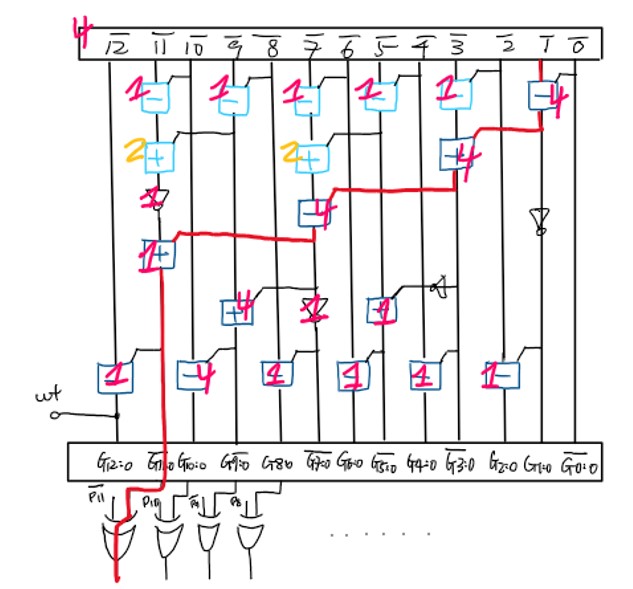 4
12 11 10 9 8 7 6 5 4 3 2 1 0
1 − 1 − 1 − 1 − 1 − − 4
2 + 2 + + 4
1 − 4
1 +
+ 4 1 + 1
1 − − 4 1 − 1 − 1 − 1 −
wt
G12:0 G11:0 G10:0 G9:0 G8:0 G7:0 G6:0 G5:0 G4:0 G3:0 G2:0 G1:0 G0:0
P11 P10 P9 P8
. . . . . .